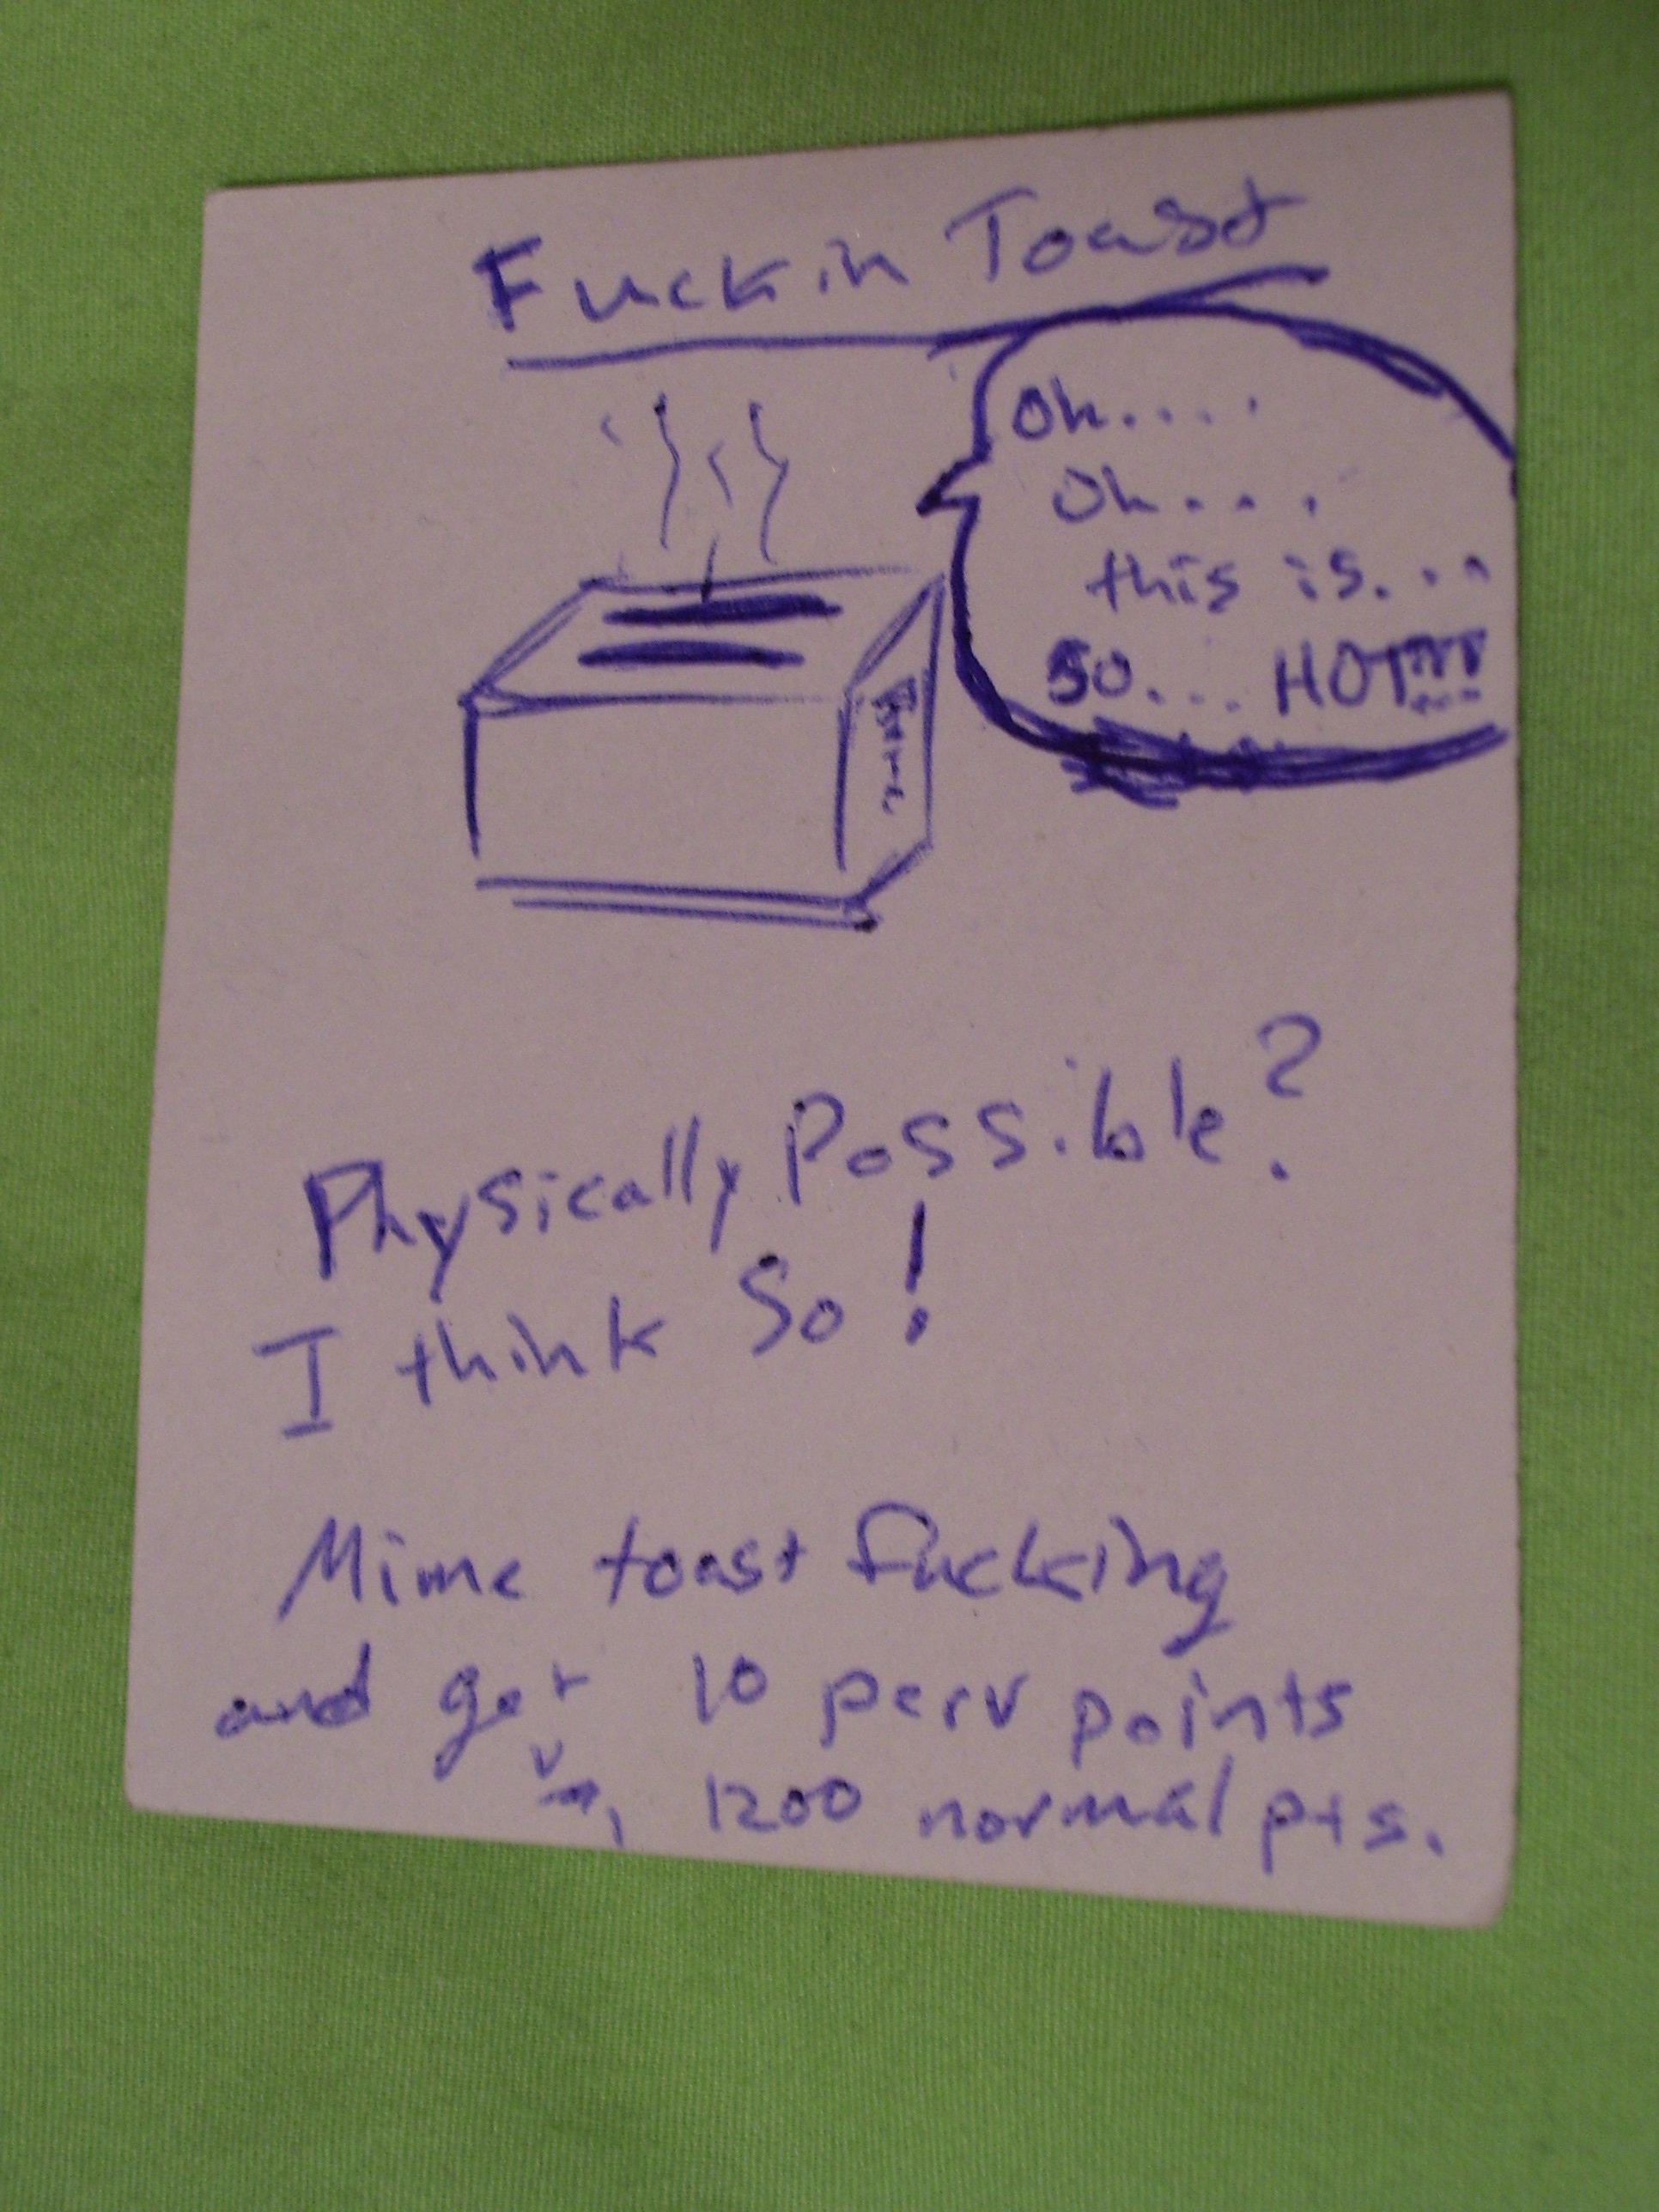 Fuckin Toast
Oh....
Oh....
this is...
so... HOT!!!!
Physically Possible?
I think So!
Mime toast fucking
and get 10 perv points
1200 normal pts.